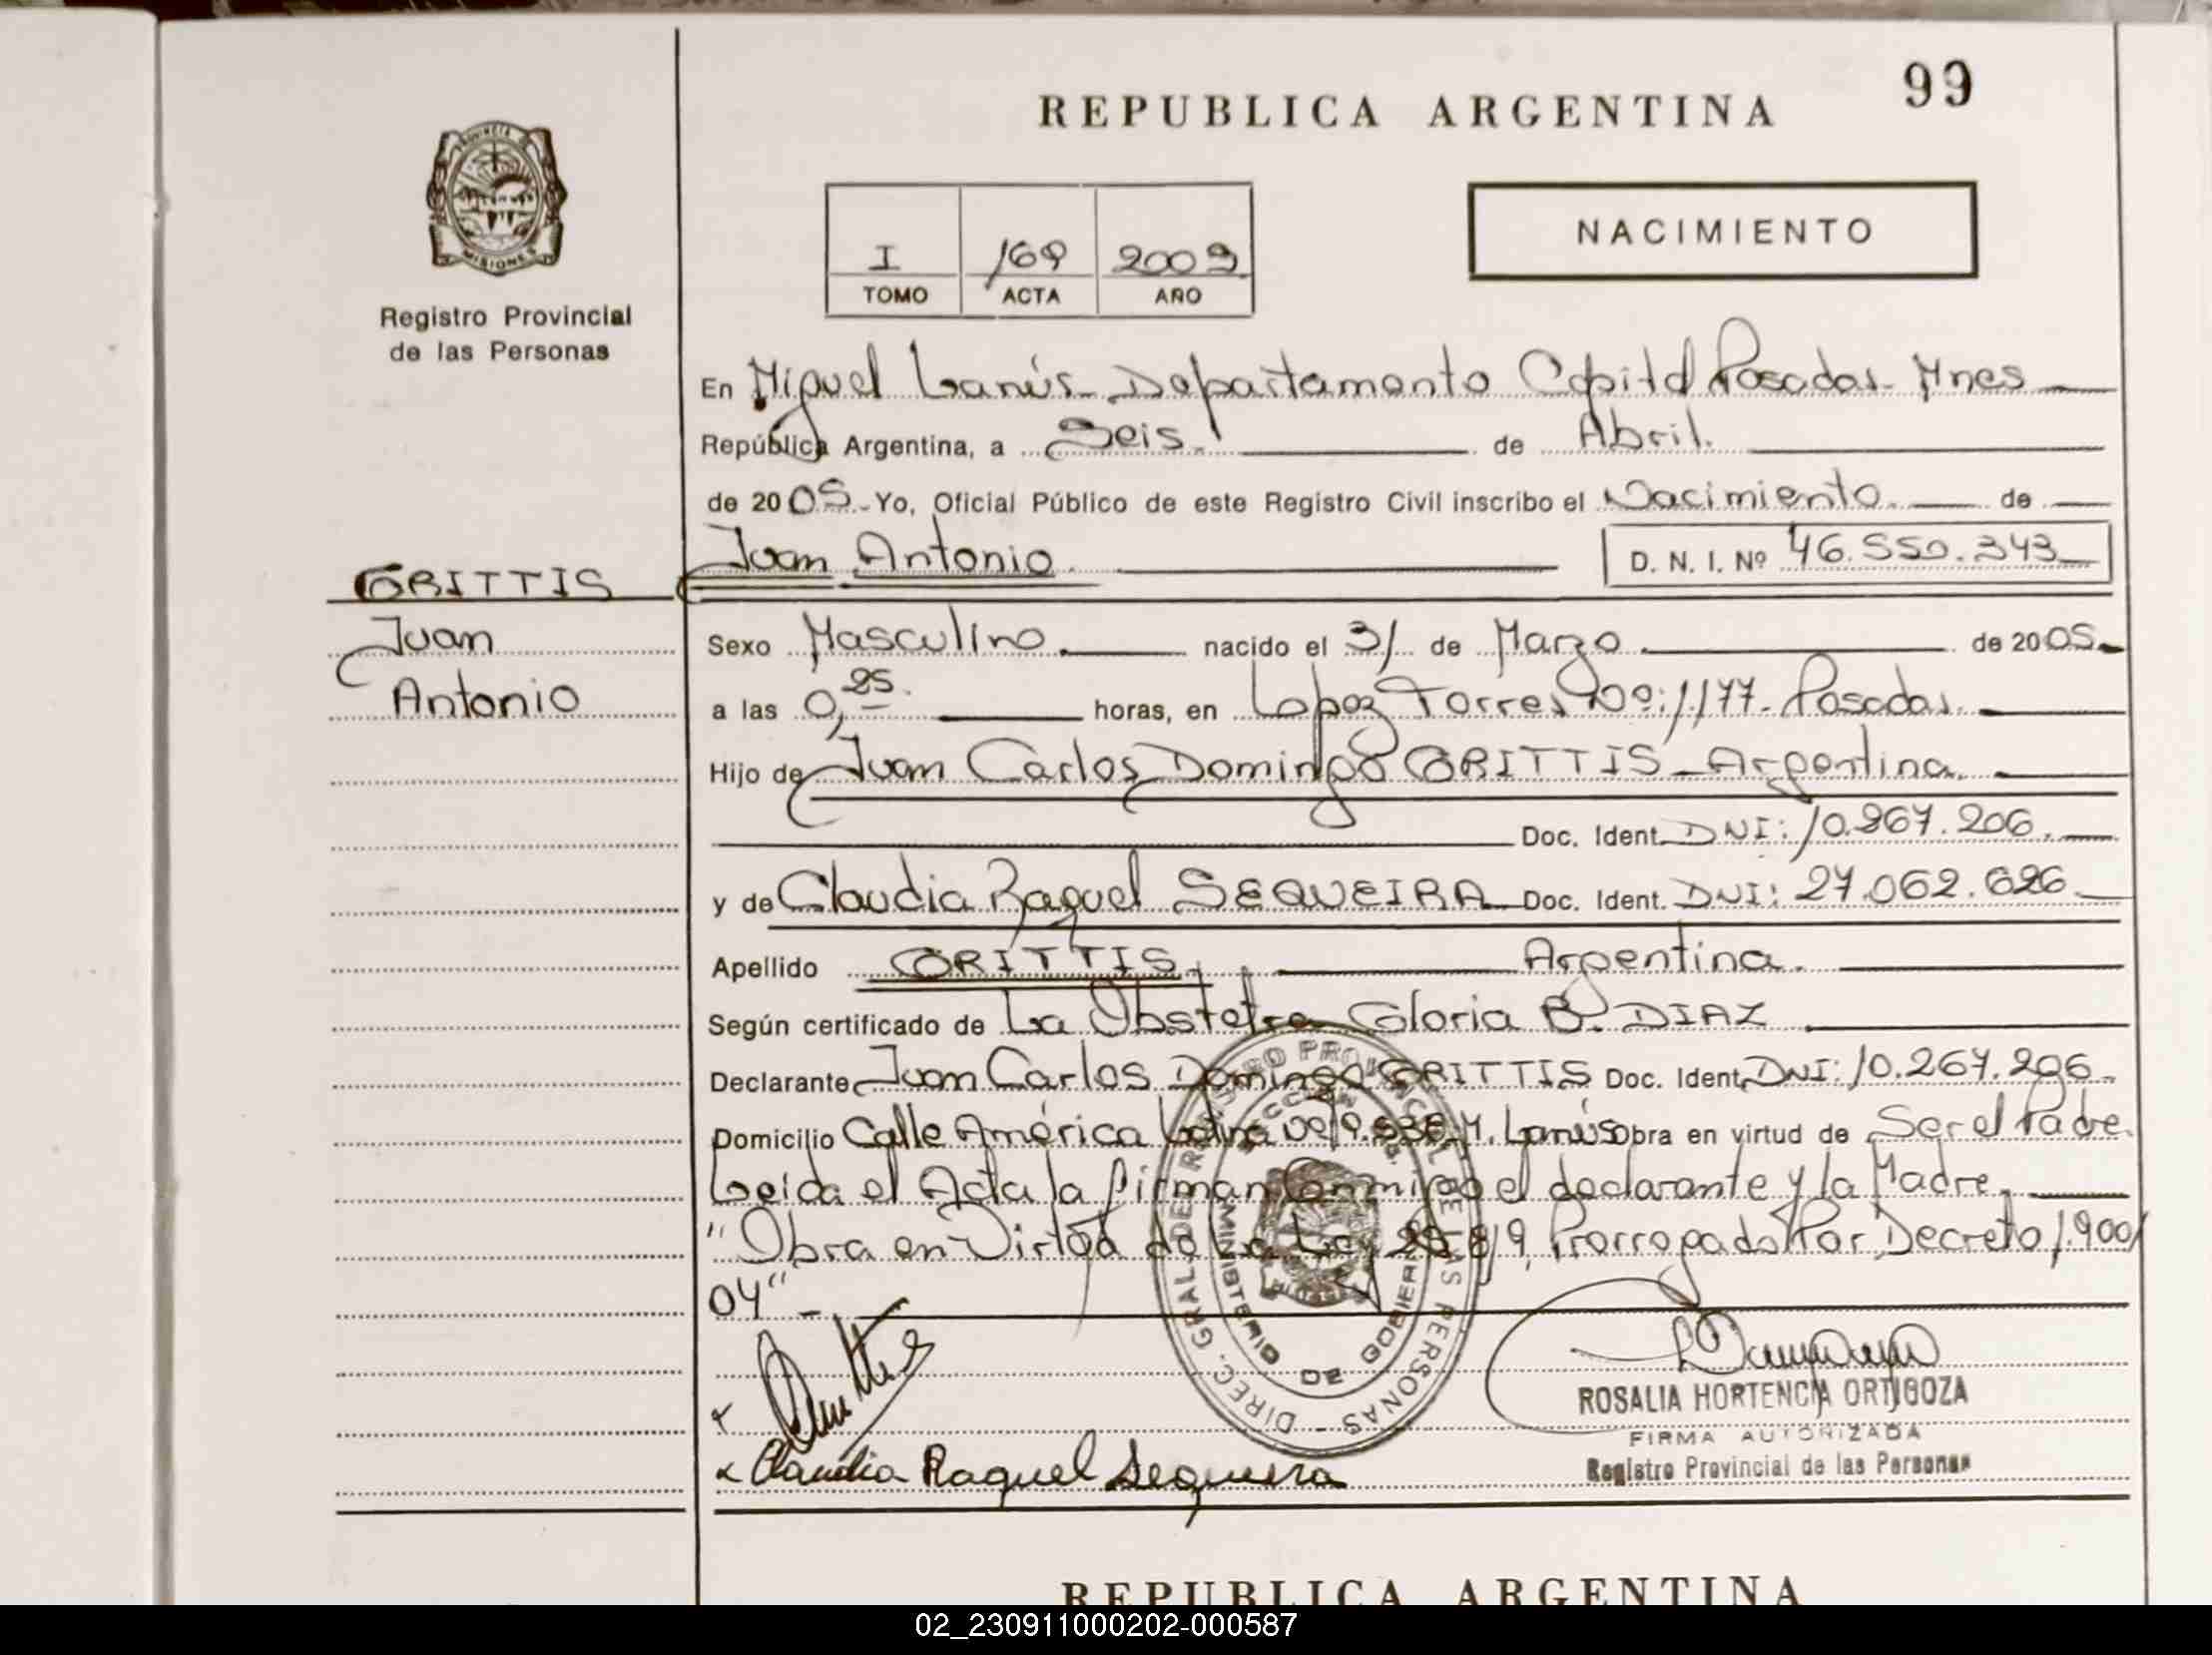 99
REPUBLICA ARGENTINA
PROVINCIA
MISIONES
Registro Provincial
de las Personas
I 169 2005
TOMO ACTA AÑO
NACIMIENTO
En Miguel Lanús - Departamento Capital Posadas - Mnes
República Argentina, a Seis. de Abril.
de 2005.- Yo, Oficial Público de este Registro Civil inscribo el Nacimiento. de
Juan Antonio. D. N. I. Nº 46.550.343
GRITTIS
Juan
Antonio
Sexo Masculino nacido el 31 de Marzo de 2005.
a las 0,25. horas, en Lopez Torres Nº: 1177. Posadas.
Hijo de Juan Carlos Domingo GRITTIS - Argentina.
Doc. Ident. DNI: 10.267.206.
y de Claudia Raquel SEQUEIRA Doc. Ident. DNI: 27.062.626
Apellido GRITTIS. Argentina.
Según certificado de La Obstetra Gloria B. DIAZ
Declarante Juan Carlos Domingo GRITTIS Doc. Ident. DNI: 10.267.206.
Domicilio Calle América Latina M. Lanús Obra en virtud de Ser el Padre.
Leida el Acta la firman conmigo el declarante y la Madre.
"Obra en Virtud de La Ley 25.819, Prorrogado Por Decreto 1.900/
04" -
DIREC. GRAL. DE REGISTRO PROVINCIAL DE LAS PERSONAS -
MINISTERIO DE GOBIERNO
Claudia Raquel Sequeira
ROSALIA HORTENCIA ORTIGOZA
FIRMA AUTORIZADA
Registro Provincial de las Personas
REPUBLICA ARGENTINA
02_230911000202-000587